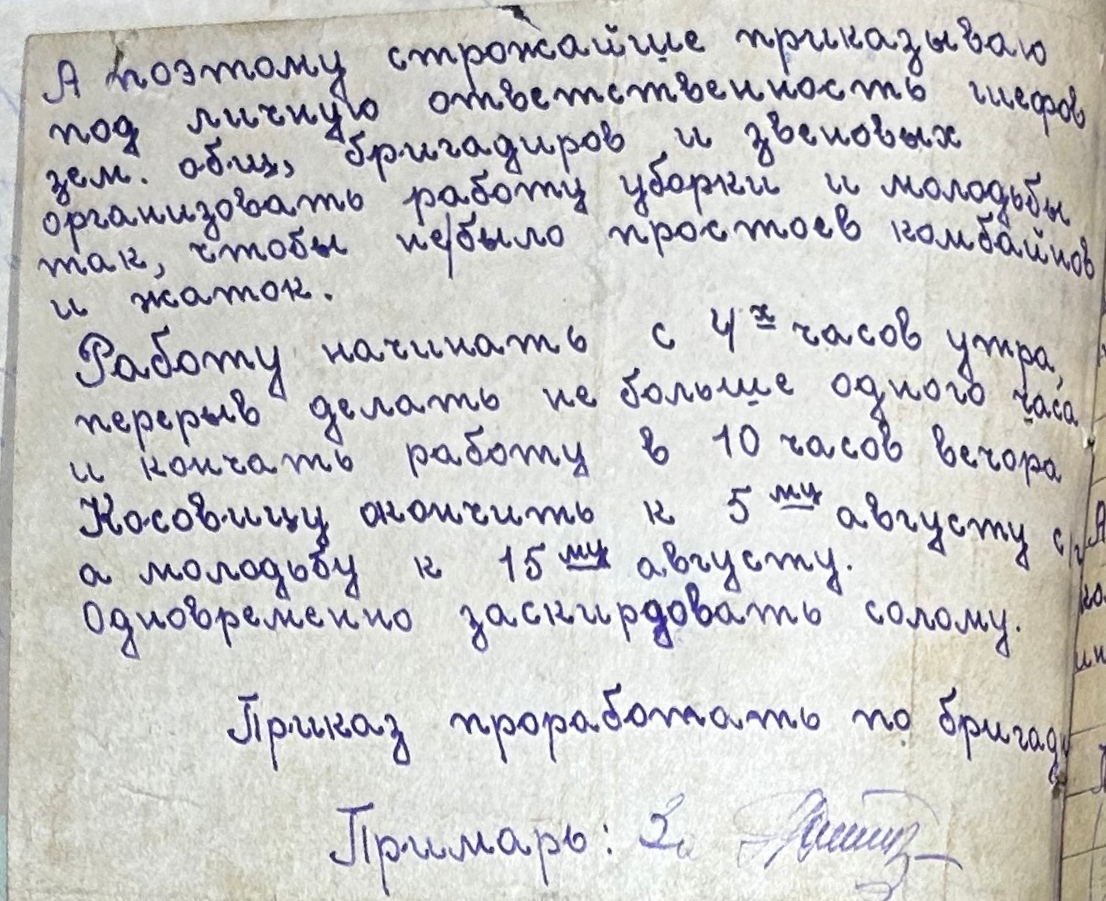 А поэтому строжайше приказываю
под личную ответственность шефов
зем. общ, бригадиров и звеновых
организовать работу уборки и молодьбы
так, чтобы не/было простоев комбайнов
и жаток.
Работу начинать с 4х часов утра,
перерыв делать не больше одного часа
и кончать работу в 10 часов вечора
Косовицу окончить к 5му августу с/г
а молодьбу к 15му августу.
Одновременно заскирдовать солому.
Приказ проработать по бригад
Примарь: За